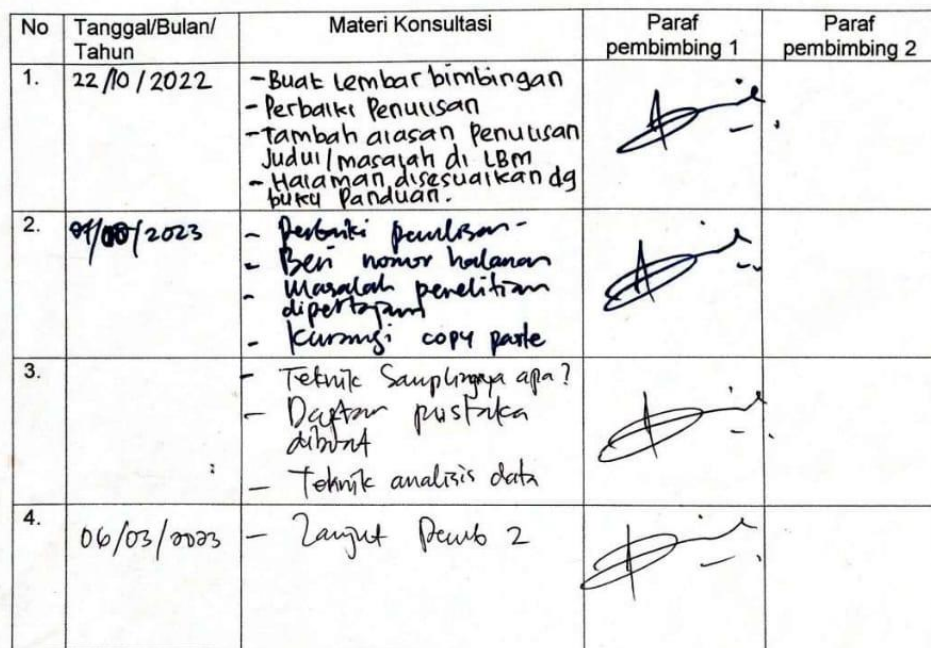 No Tanggal/Bulan/ Tahun Materi Konsultasi Paraf pembimbing 1 Paraf pembimbing 2
1. 22/10/2022 - Buat Lembar bimbingan
- Perbaiki Penulisan
- Tambah alasan Penulisan
Judul/masalah di LBM
- Halaman disesuaikan dg
buku Panduan.
2. /2023 - Perbaiki penulisan -
- Beri nomor halaman
- Masalah penelitian
dipertajam
- Kurangi copy paste
3. - Teknik Samplingnya apa?
- Daftar pustaka
dibuat
- Teknik analisis data
4. 06/03/2023 - Lanjut Pemb 2